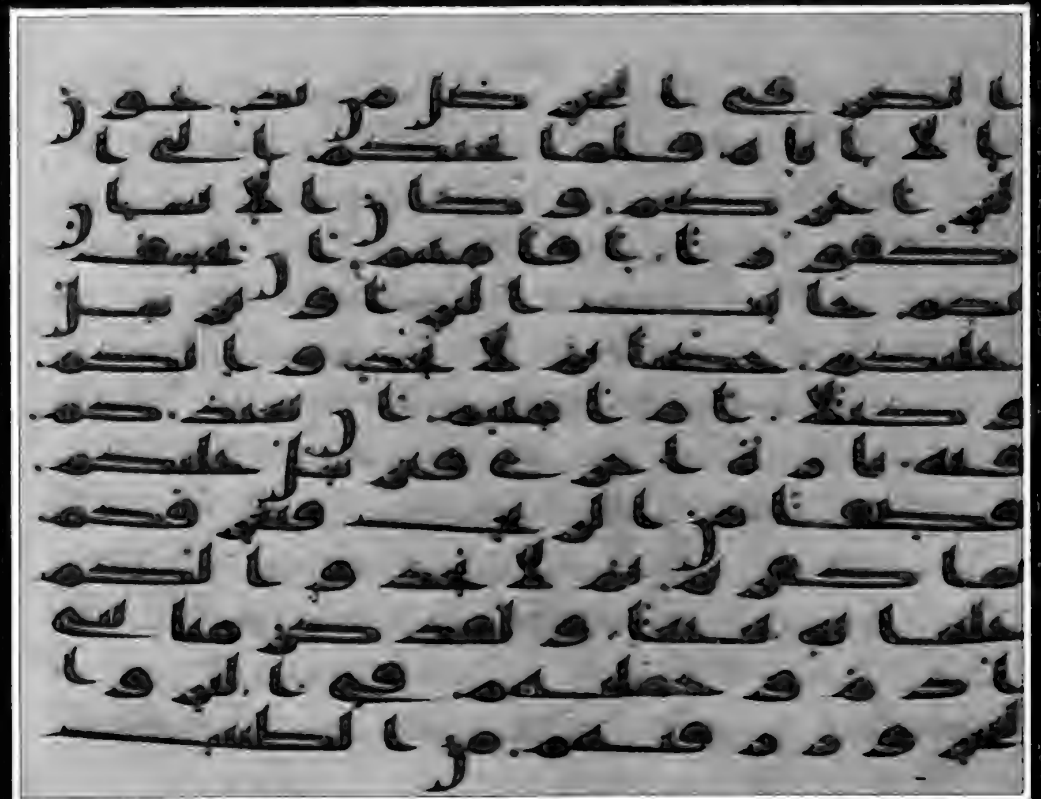 الضر في البحر ضل من تدعون
الا اياه فلما نجيكم الى ا
لبر اعرضتم وكان الانسان
كفورا افامنتم ان يخسف
بكم جانب البر او يرسل
عليكم حاصبا ثم لا تجدوا لكم
وكيلا ام امنتم ان يعيدكم
فيه تارة اخرى فيرسل عليكم
قصفا من الريح فيغرقكم
بما كفرتم ثم لا تجدوا لكم
علينا به تبيعا ولقد كرمنا بني
ادم وحملنهم في البر وا
لبحر ورزقنهم من الطيبت